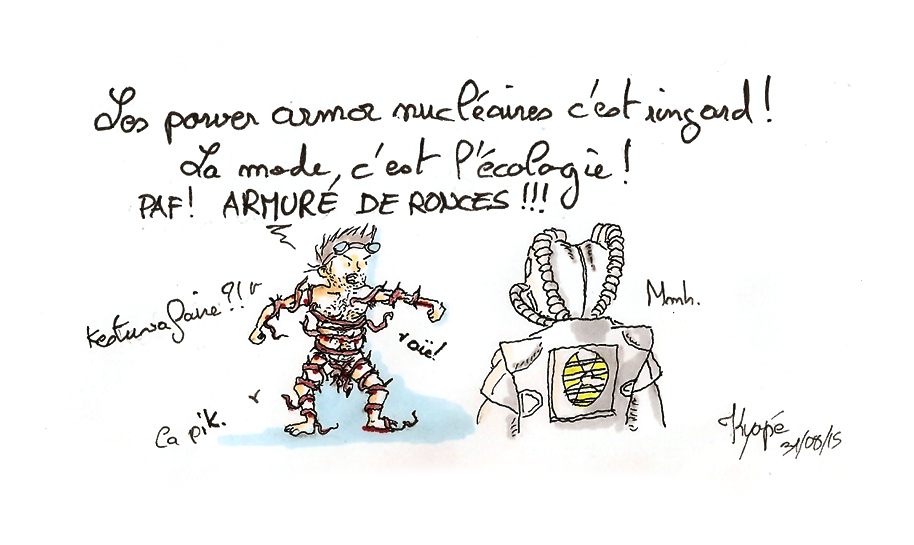 Les power armor nucléaires c'est ringard !
La mode, c'est l'écologie !
PAF ! ARMURE DE RONCES !!!
Kestuvafaire ?!
Mmh.
aïe !
Ca pik.
Kyopé
31/08/15